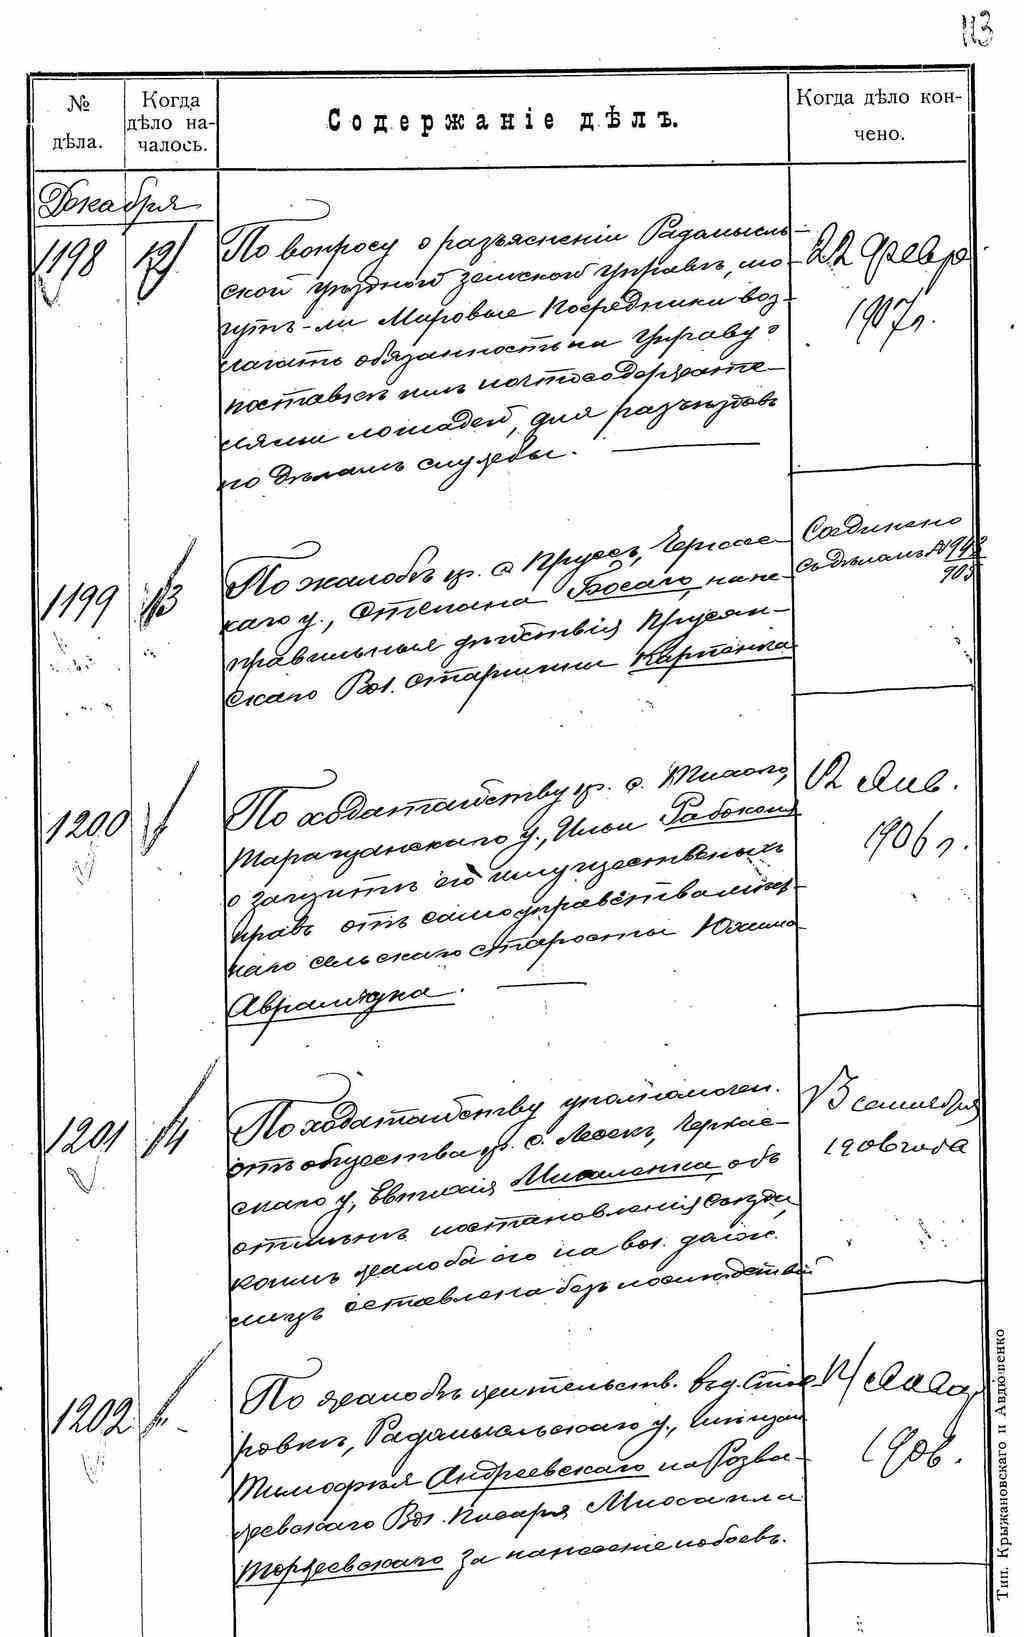 113
№ дѣла.
Когда дѣло началось.
Содержаніе дѣлъ.
Когда дѣло кончено.
Декабря
1198
По вопросу о разъясненіи Радомысль-
ской уѣздной земской управѣ, мо-
гутъ-ли Мировые Посредники воз-
лагать обязанность на управу о
поставкѣ имъ почтосодержате-
лями лошадей, для разъѣздовъ
по дѣламъ службы.
22 Февр
1907 г.
1199
13
По жалобѣ кр. с. Прусъ, Черкас-
каго у., Степана Босаго, на не-
правильные дѣйствія Прусян-
скаго Вол. старшины Карпенка
Соединено
съ дѣломъ №
1200
По ходатайству кр. с.
Таращанскаго у., Ильи
о защитѣ его имущественныхъ
правъ отъ самоуправства
сельскаго старосты Юхима
Аврамчука.
12 Янв.
1906 г.
1201
14
По ходатайству уполномочен.
отъ общества кр. с. Лесекъ, Черкас-
скаго у, Евтихія Михаленка, объ
отмѣнѣ постановленія Съѣзда,
коимъ жалоба его на вол. долж.
лицъ оставлена безъ послѣдствій
сентября
1906 года
1202
По жалобѣ жительств. въ д.
Радомысльскаго у.,
Тимофея Андреевскаго на Розва-
жевскаго Вол. Писаря Михаила
Торжевскаго за нанесеніе побоевъ.
Января
1906.
Тип. Крыжановскаго и Авдюшенко